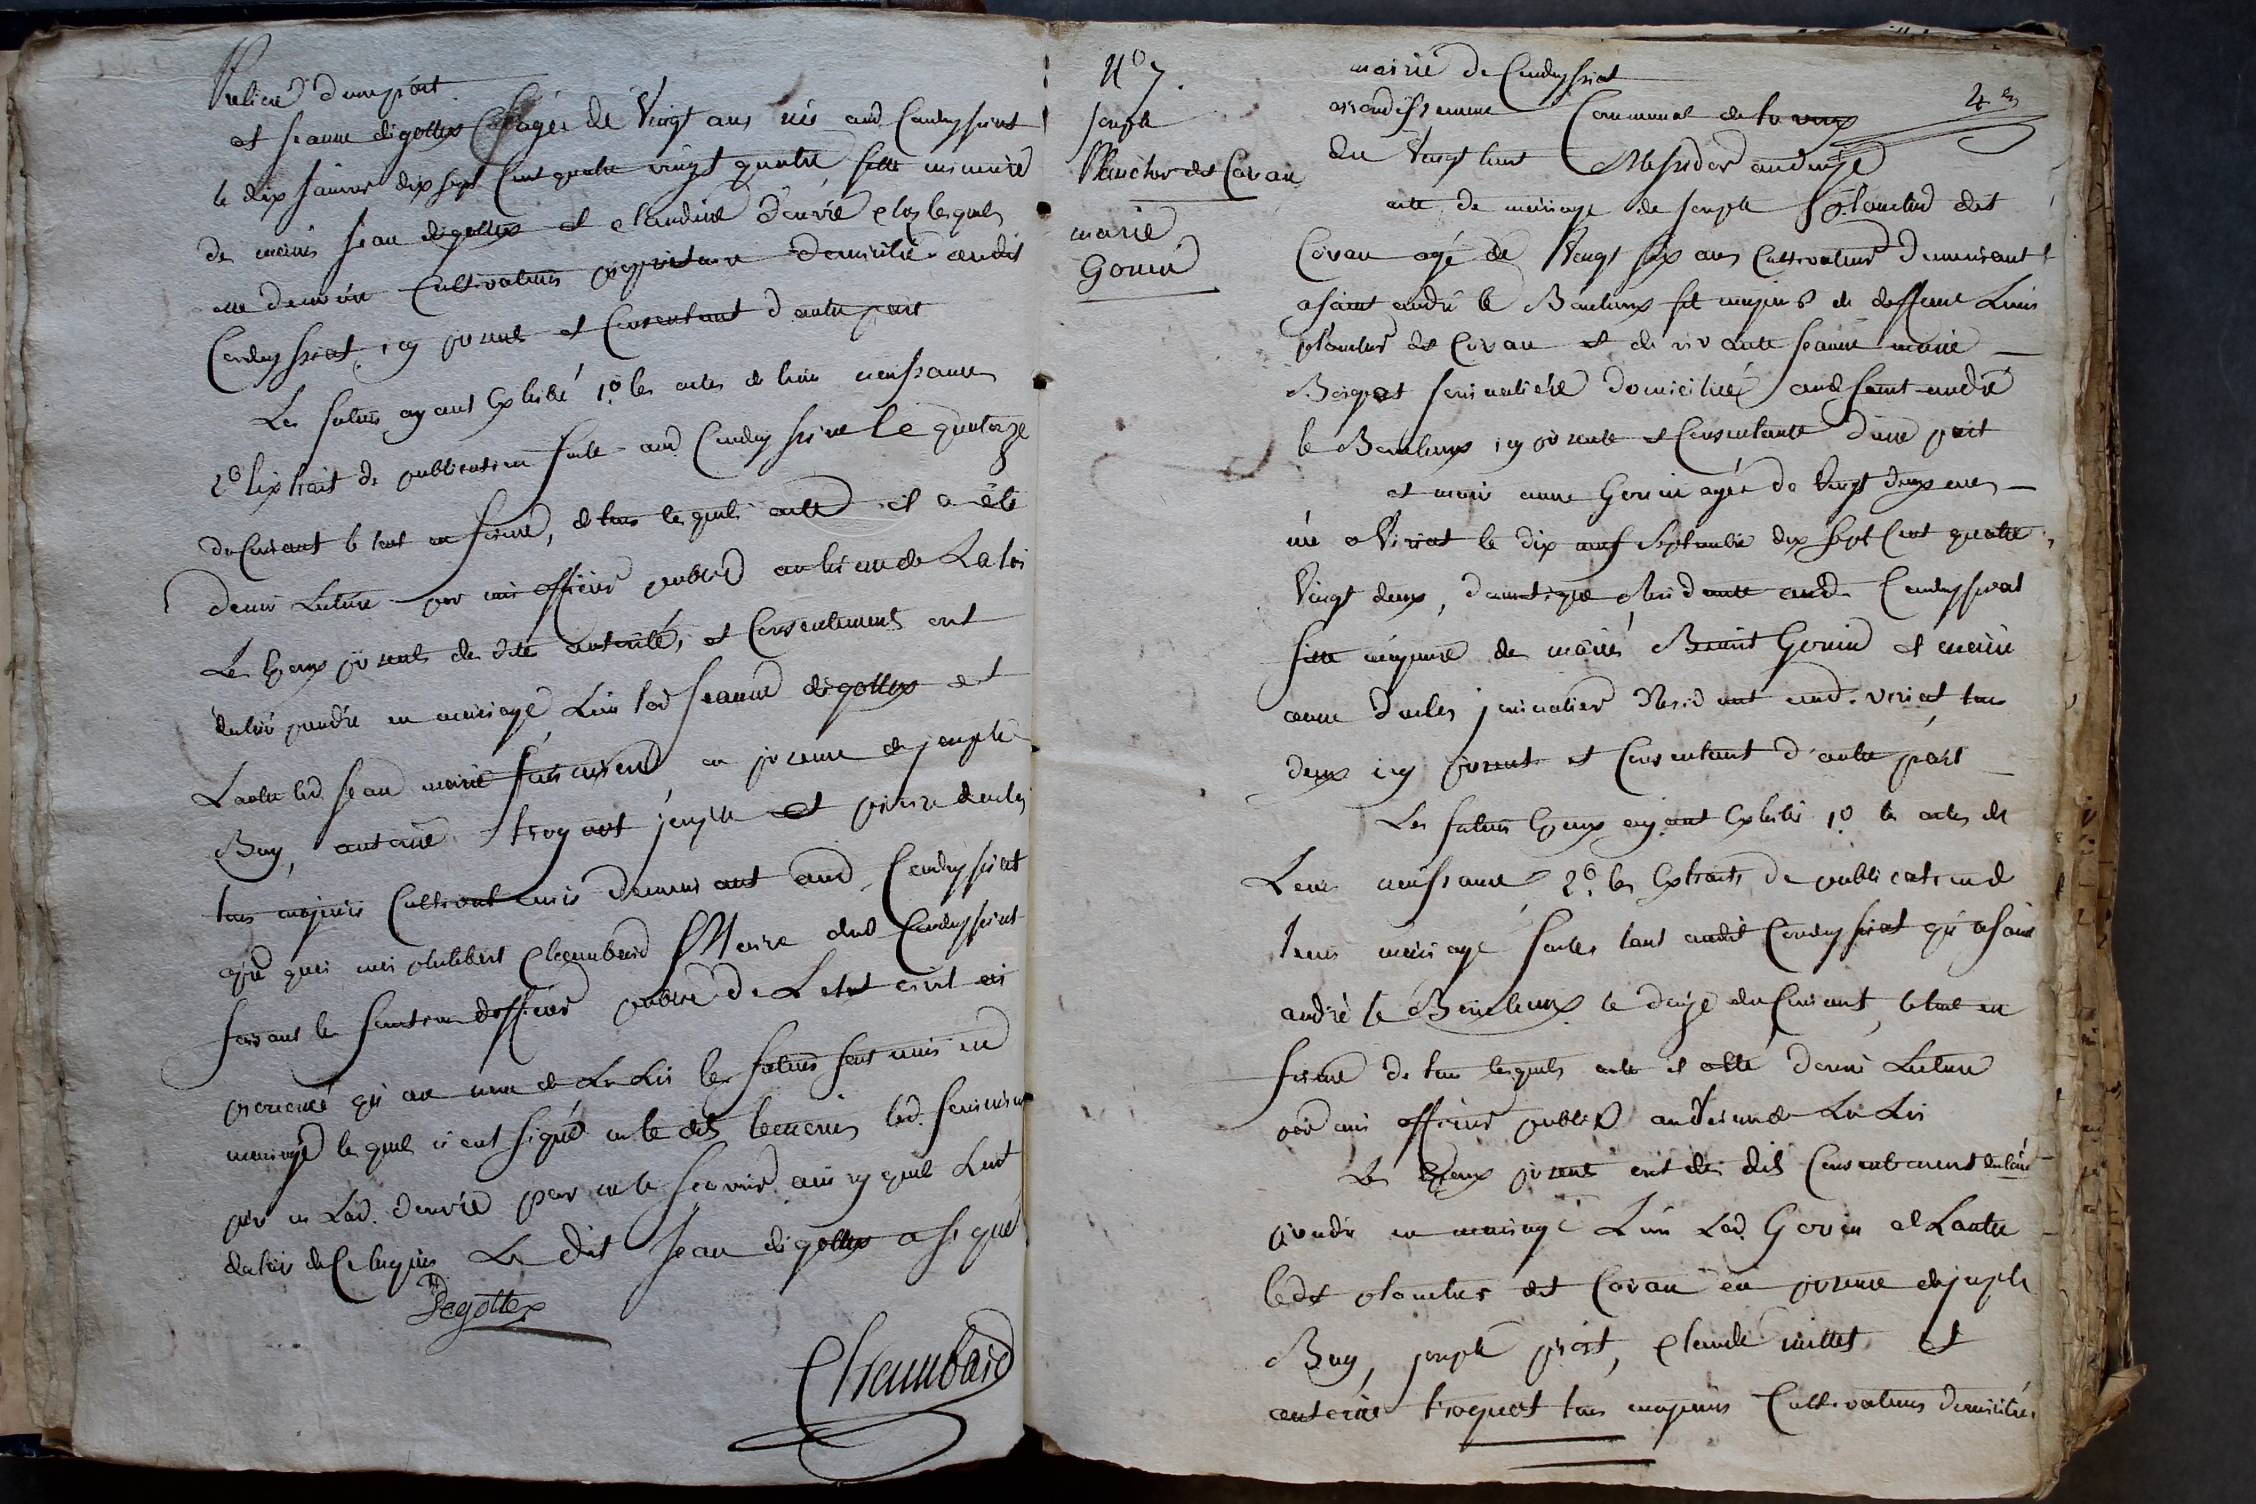 d'une part
et jeanne degottex agée de Vingt ans née aud Condeyssiat
le dix janvier dix sept Cent quatre vingt quatre, fille mineure
de mariés jean degottex et claudine
Cultivateurs propriétaire domicilié audit
Condeyssiat, icy present et Consentant d'autre part
Les futurs ayant Exhibé 1º les actes de leur naissance
2º L'extrait de publication faite aud Condeyssiat le quatorze
du Courant le tout en forme, de tous lesquels acte il a été
donné Lecture par moi officier public au termes de La loi
Les Epoux present de dite autorité, et Consentement ont
déclaré prendre en mariage, L'un lad jeanne degottex et
L'autre led. jean marie en presence de joseph
Buy, antoine troquet joseph et pierre
tous majeurs Cultivateurs demeurant aud Condeyssiat
après quoi moi philibert Chambard Maire dud Condeyssiat
faisant les fonction d'officier public de L'etat civil ai
prononcé qu'au nom de La Loi les futurs sont unis en
mariage lesquels n'ont signé
pour ne le scavoir ainsy quil L'ont
déclaré de Ce Le dit jean degottex a signé
Degottex
Chambard
Nº 7.
joseph
Planchet dit Covan
marie
Gonin
mairie de Condeyssiat
arrondissement Communal de trevoux
4
du Vingt huit Messidor an douze
acte de mariage de joseph Planchet dit
Covan agé de Vingt six ans Cultivateur demeurant
a saint andré le Bouchoux fils majeur de deffunt Louis
planchet dit Covan et de vivante jeanne marie
journalière domiciliée aud saint andré
le Bouchoux icy presente et Consentante d'une part
et marie anne Gonin agée de Vingt deux ans
née a Viriat le dix neuf Septembre dix sept Cent quatre
Vingt deux, domestique Residante aud Condeyssiat
fille majeure de mariés Benoit Gonin et marie
anne journalier Residant aud. viriat tous
deux icy present et Consentant d'autre part
Les futurs Epoux ayant Exhibés 1º les actes de
Leur naissance, 2º les Extraits de publication de
leur mariage faites tant audit Condeyssiat qu'a saint
andré le Bouchoux le douze du Courant, le tout en
forme de tous lesquels acte il a été donné Lecture
par moi officier public au termes de La Loi
Les Epoux present ont des dits Consentement déclaré
prendre en mariage L'un Lad. Gonin et L'autre
ledt planchet dit Covan en presence de joseph
Buy, joseph claude millet et
antoine troquet tous majeurs Cultivateurs domiciliés